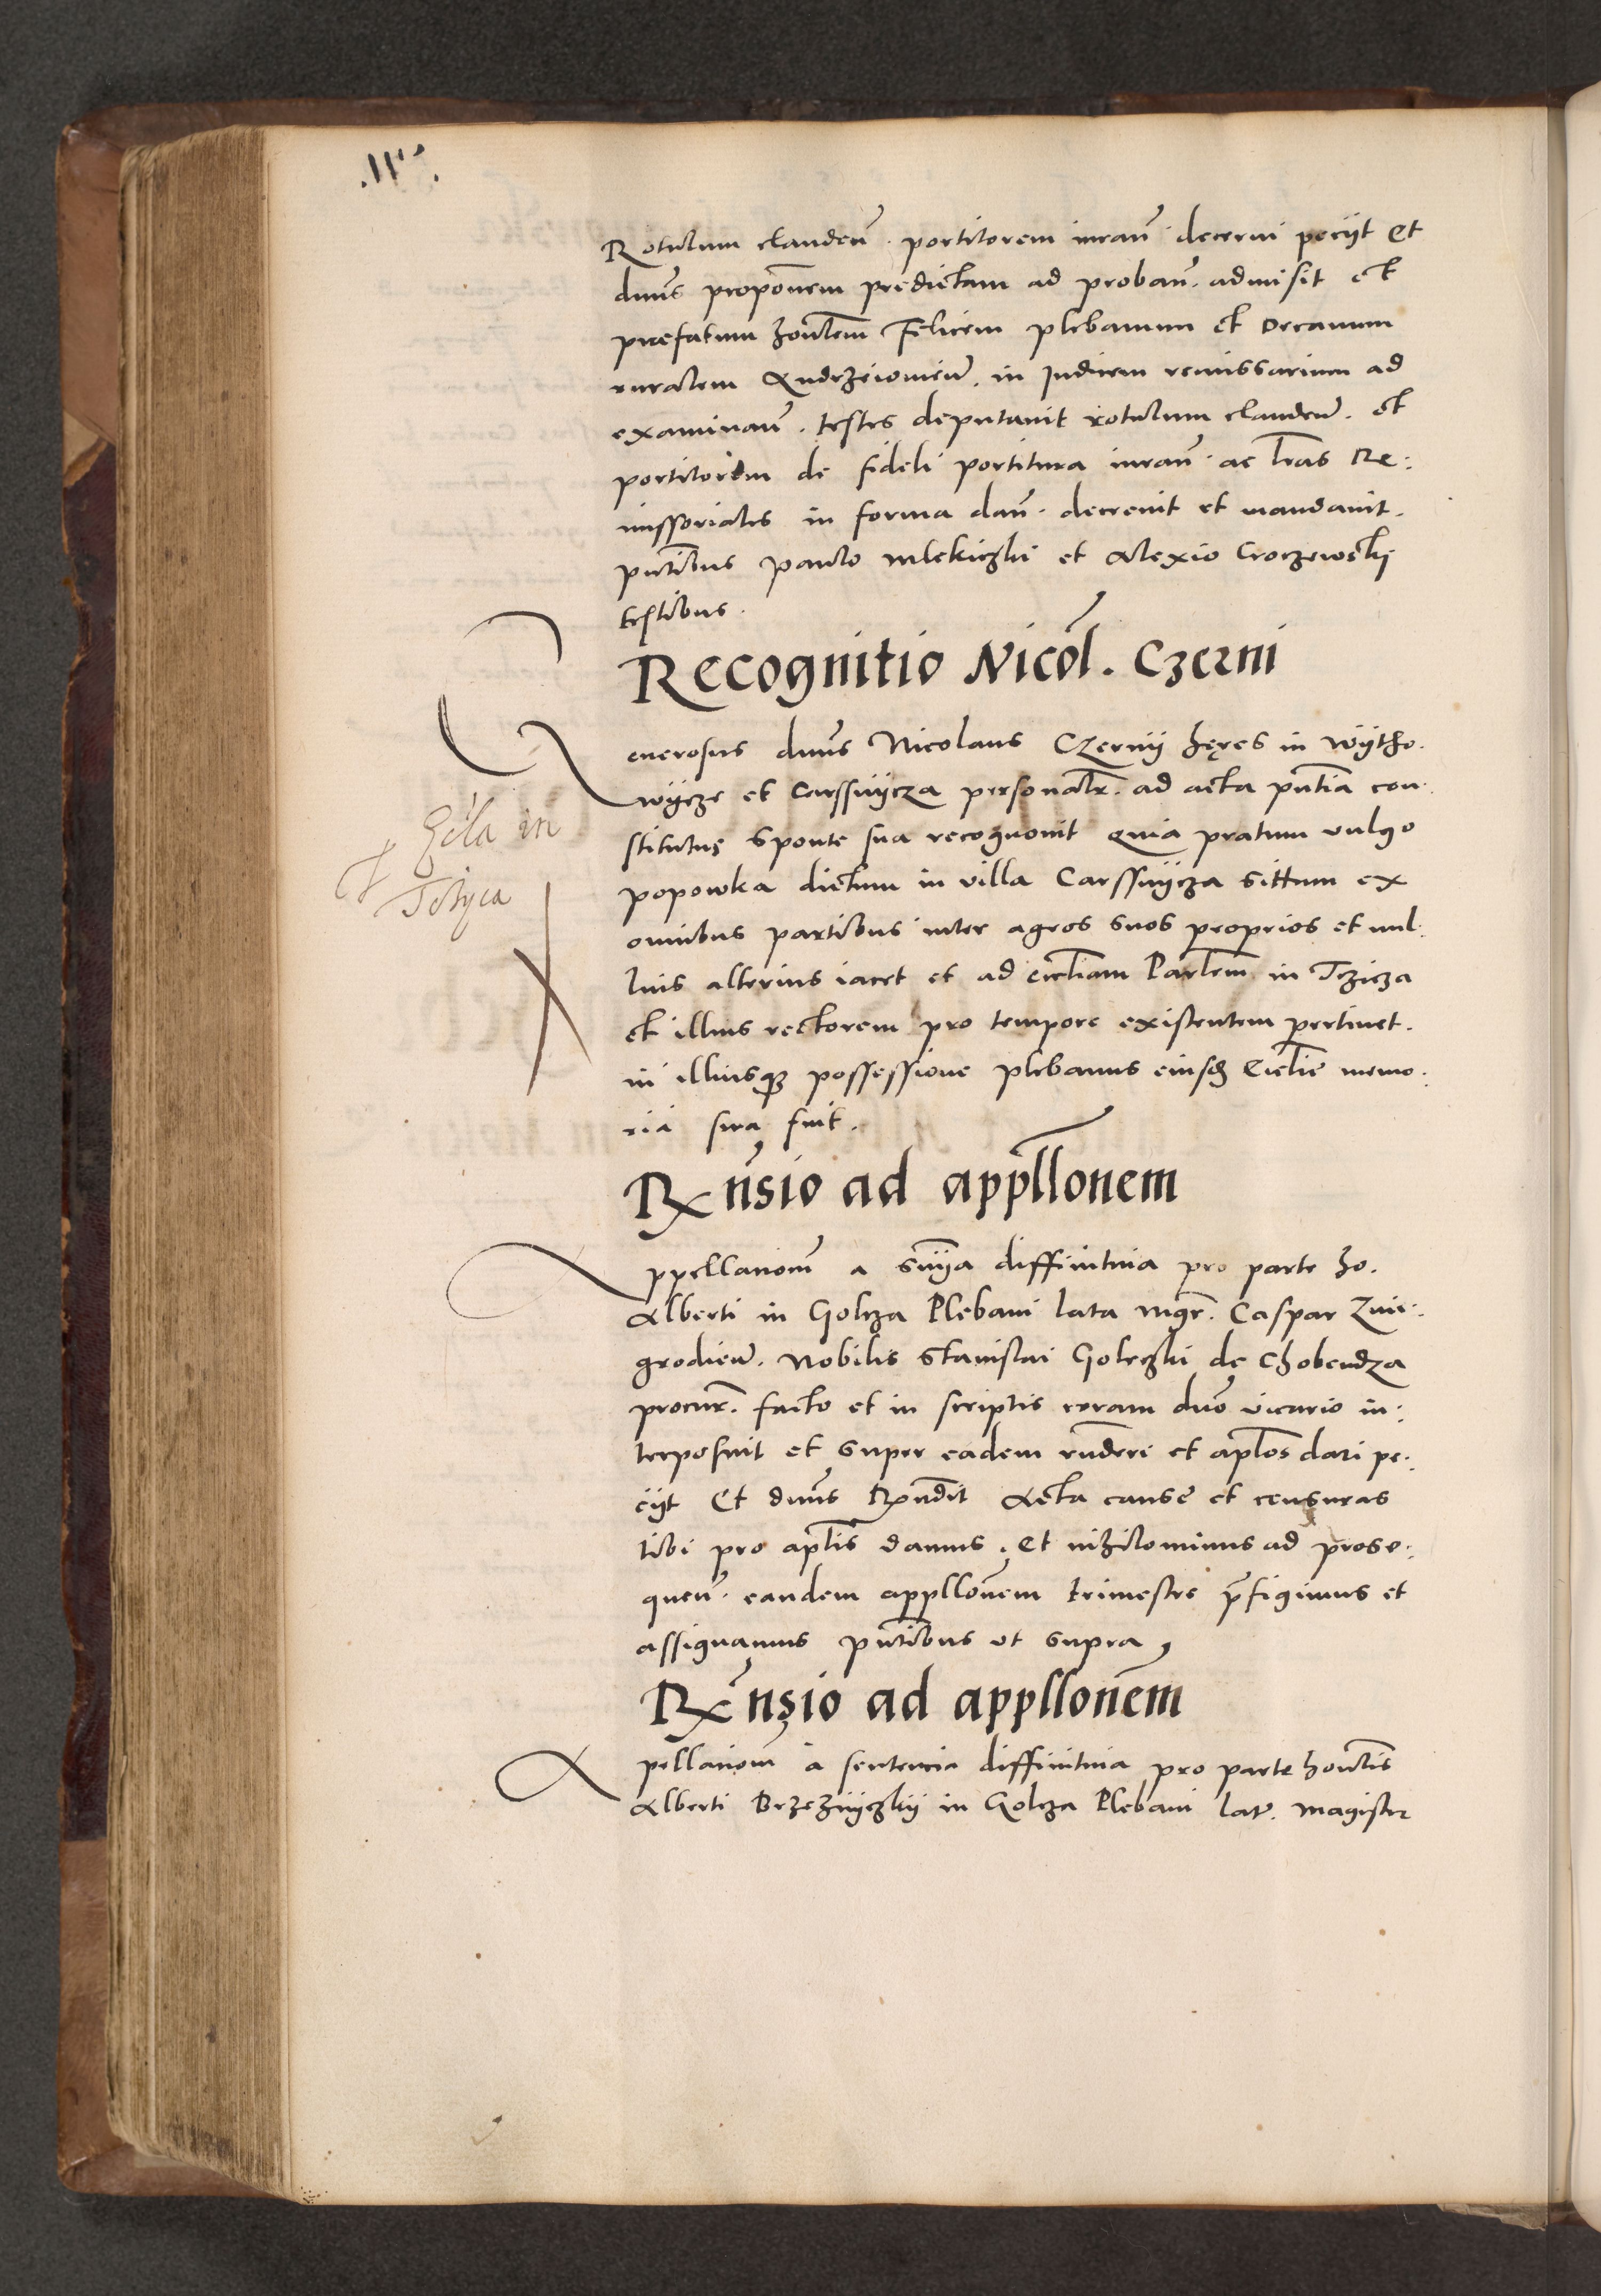 Rotulum clauden̄. portitorem iuran̄. decerni peciit Et
dnūs proponem predictam ad proban̄. admisit et
praefatum honlem Felicem plebanum et Decanum
ruralem Andrzeiowien̄. in Judicem remissarium ad
examinan̄. testes deputavit rotulum clauden̄. et
portitorem de fideli portitura iuran̄. ac lras Re:
missoriales in forma dan̄. decrevit et mandavit.
pntibus Paulo Mlekiczki et Alexio Croczewskij
testibus.
Recognitio Nicol. Czerni
Generosus dnūs Nicolaus Czernij hęres in Wijtho.
wijcze et Carssnijcza personalr. ad acta pntia con:
stitutus sponte sua recognovit Quia pratum vulgo
popowka dictum in villa Carssnijcza sittum ex
omnibus partibus inter agros suos proprios et nul:
lius alterius iacet et ad eccliam Parlem in Tczicza
et illius rectorem pro tempore existentem pertinet.
in illiusq; possessione plebanus eiusd Ecclie memo:
ria sua fuit.
Eccla in
Tčzyca
Rx nsio ad appllonem
Appellacionem a snija diffinitiva pro parte ho.
Alberti in Golcza Plebani lata mgr. Caspar Zwi:
grodien̄. Nobilis Stanislai Goleczki de Chobendza
procur. facto et in scriptis coram dno vicario in:
terposuit et super eadem rnderi et aplos dari pe:
ciit Et dnūs Rxndit Acta cause et censuras
tibi pro aplis damus. Et nihilominus ad prose:
quen̄. eandem appllonem trimestre prefigimus et
assignamus pntibus ut supra,
Rx nsio ad appllonem
Apellacionem a sentencia diffinitiva pro parte honlis
Alberti Brzeznijczkij in Golcza Plebani lat. magister